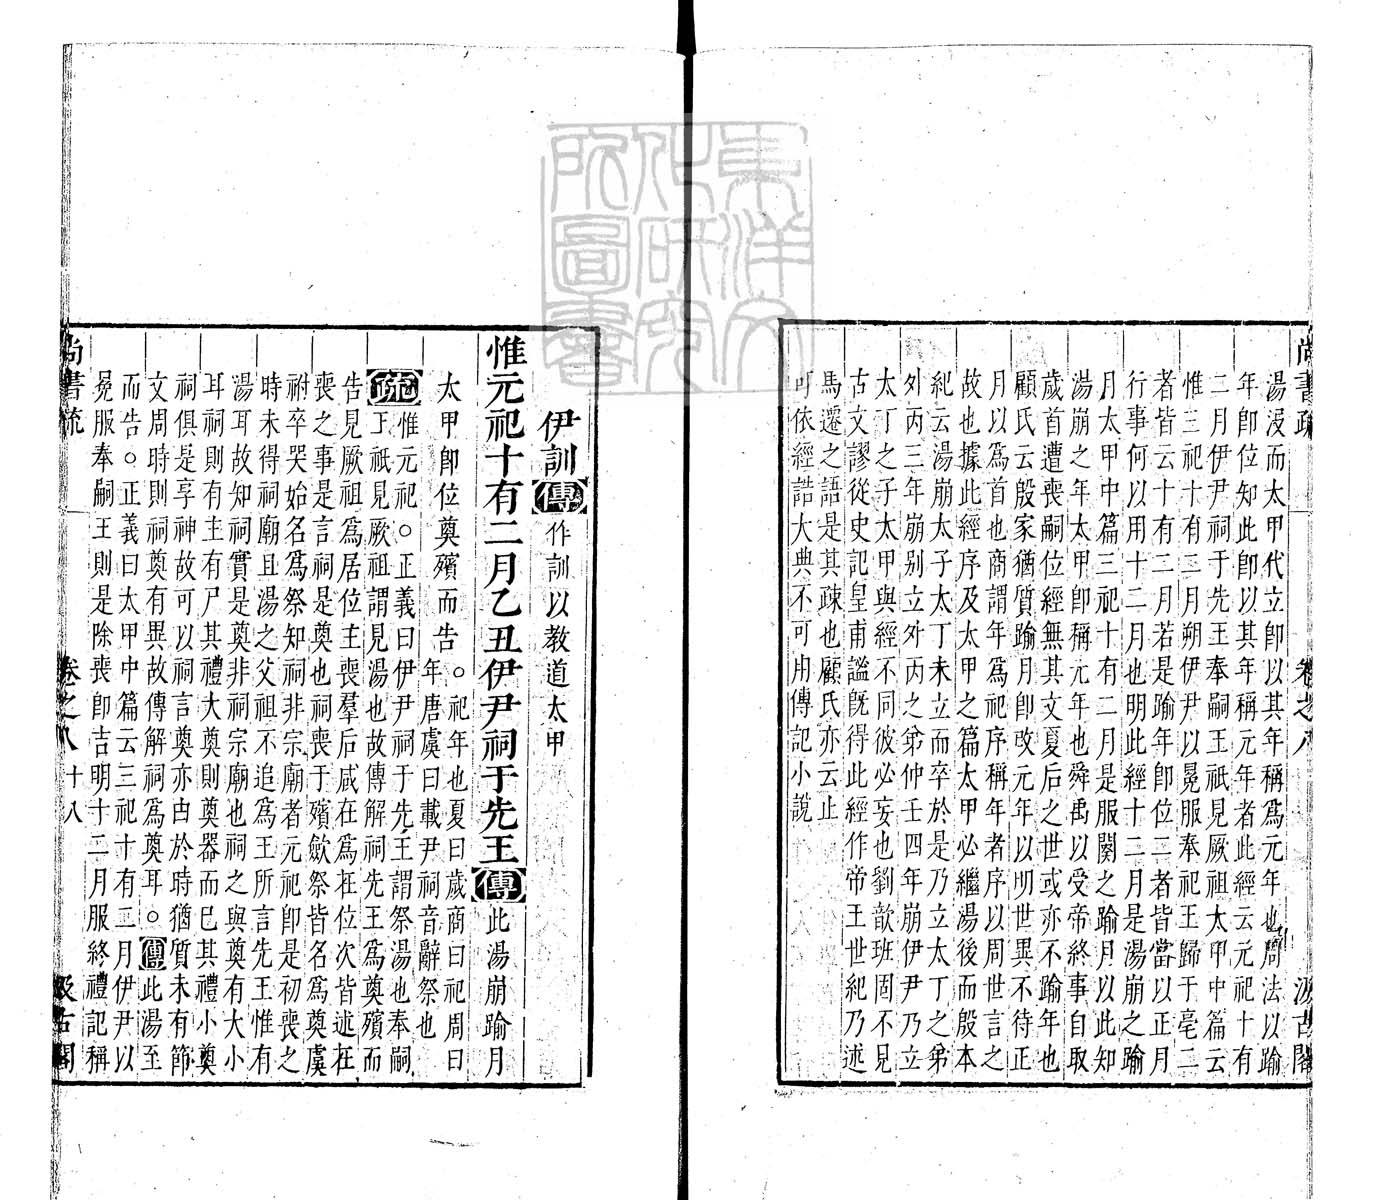 尚書疏　卷之八　汲古閣
湯沒而太甲代立即以其年稱爲元年也周法以踰
年即位知此即以其年稱元年者此經云元祀十有
二月伊尹祠于先王奉嗣王祗見厥祖太甲中篇云
惟三祀十有二月朔伊尹以冕服奉祀王歸于亳二
者皆云十有二月若是踰年即位二者皆當以正月
行事何以用十二月也明此經十二月是湯崩之踰
月太甲中篇三祀十有二月是服闋之踰月以此知
湯崩之年太甲即稱元年也舜禹以受帝終事自取
歲首遭喪嗣位經無其文夏后之世或亦不踰年也
顧氏云殷家猶質踰月即改元年以明世異不待正
月以為首也商謂年爲祀序稱年者序以周世言之
故也據此經序及太甲之篇太甲必繼湯後而殷本
紀云湯崩太子太丁未立而卒於是乃立太丁之弟
外丙三年崩别立外丙之弟仲壬四年崩伊尹乃立
太丁之子太甲與經不同彼必妄也劉歆班固不見
古文謬從史記皇甫謐既得此經作帝王世紀乃述
馬遷之語是其疎也顧氏亦云止
可依經誥大典不可用傳記小說
伊訓傳作訓以教道太甲
惟元祀十有二月乙丑伊尹祠于先王傳此湯崩踰月
太甲即位奠殯而告○祀年也夏曰歲商曰祀周曰
年唐虞曰載尹祠音辭祭也
疏惟元祀○正義曰伊尹祠于先王謂祭湯也奉嗣
王祗見厥祖謂見湯也故傳解祠先王爲奠殯而
告見厥祖爲居位主喪羣后咸在爲在位次皆述在
喪之事是言祠是奠也祠喪于殯斂祭皆名爲奠虞
祔卒哭始名爲祭知祠非宗廟者元祀即是初喪之
時未得祠廟且湯之父祖不追爲王所言先王惟有
湯耳故知祠實是奠非祠宗廟也祠之與奠有大小
耳祠則有主有尸其禮大奠則奠器而已其禮小奠
祠俱是享神故可以祠言奠亦由於時猶質未有節
文周時則祠奠有異故傳解祠爲奠耳○傳此湯至
而告○正義曰太甲中篇云三祀十有二月伊尹以
冕服奉嗣王則是除喪即吉明十二月服終禮記稱
尚書疏　卷之八　十八　汲古閣
東洋文化研究所圖書